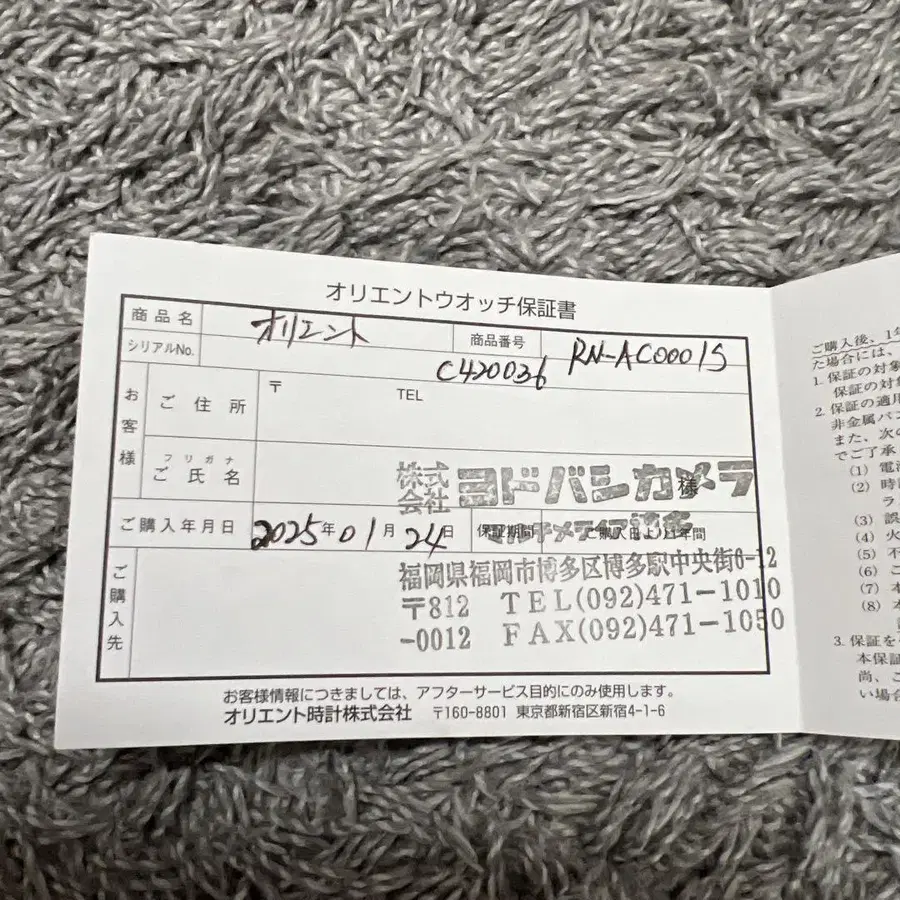 オリエントウオッチ保証書
商品名 オリエント 商品番号 RN-AC0001S
シリアルNo. C420036
お客様 ご住所 〒 TEL
フリガナ
ご氏名 様
株式会社 ヨドバシカメラ
マルチメディア博多
ご購入年月日 2025年01月24日 保証期間 ご購入日より1年間
ご購入先
福岡県福岡市博多区博多駅中央街6-12
〒812 TEL(092)471-1010
-0012 FAX(092)471-1050
お客様情報につきましては、アフターサービス目的にのみ使用します。
オリエント時計株式会社 〒160-8801 東京都新宿区新宿4-1-6
ご購入後、1年
た場合には、
1. 保証の対象
保証の対
2. 保証の適用
非金属バン
また、次の
でご了承
(1) 電池
(2) 時計
ラ
(3) 誤
(4) 火
(5) 不
(6) こ
(7) 本
(8) 本
3. 保証を
本保証
尚、こ
い場合